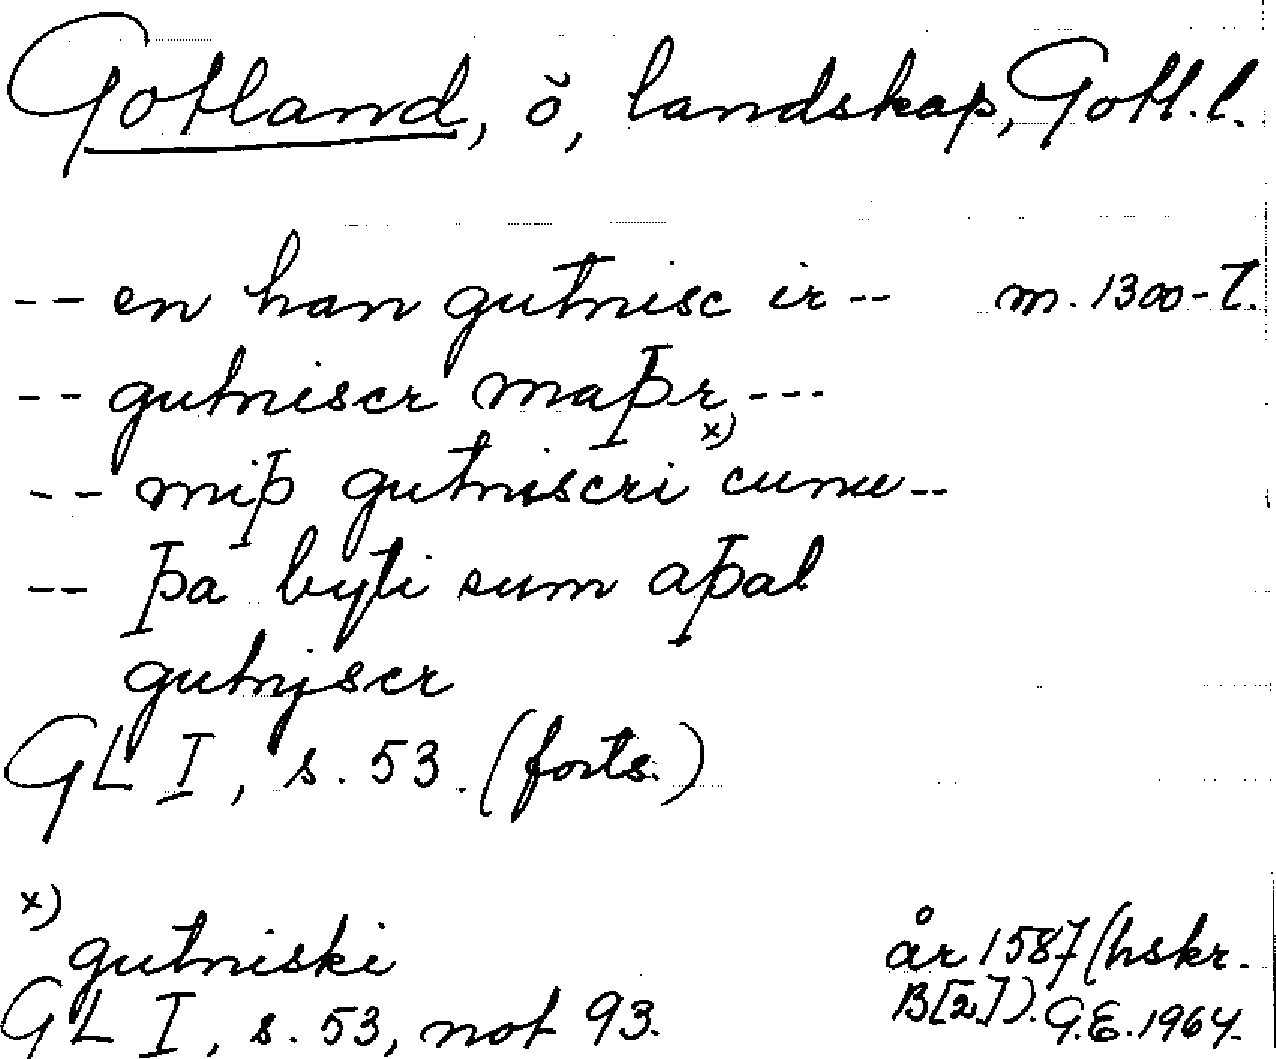 Gotland, ö, landskap, Gotl. l.
-- en han gutnisc ir -- m. 1300-t.
-- gutniscr maþr ---
-- miþ gutniscri x) cunu --
-- þa byti sum aþal
gutnjscr
GL I, s. 53. (forts.)
x)
gutniski år 1587 (hskr.
GL I, s. 53, not 93. B[2]). G.E. 1964.